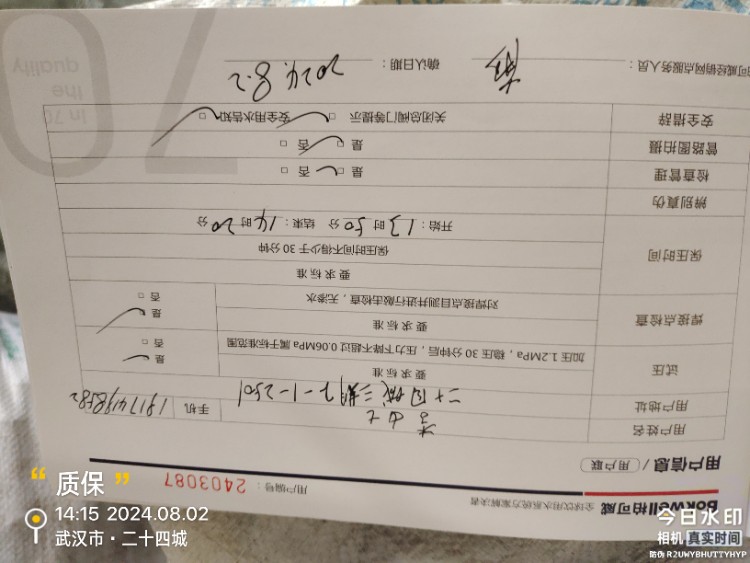 Bokwell柏可威 全球饮用水系统方案解决者
用户编号： 2403087
用户信息 / 用户联
用户姓名 李女士
用户地址 二十四城三期7-1-2501 手机
试压 要求标准 是
加压 1.2MPa，稳压 30 分钟后，压力下降不超过 0.06MPa 属于标准范围 否
焊接点检查 要求标准 是
对焊接点目测并进行敲击检查，无渗水 否
保压时间 要求标准
保压时间不得少于 30 分钟
开始：13 时 50 分 结束：14 时 20 分
辨别真伪
检查管理 是 否
管路图拍摄 是 否
安全措辞 关闭总阀门等提示 安全用水告知
柏可威经销网点服务人员： 确认日期： 2024.8.2
70
in 70
the
quality
质保
14:15 2024.08.02
武汉市·二十四城
今日水印
相机 真实时间
防伪 R2UWYBHUTTYHYP